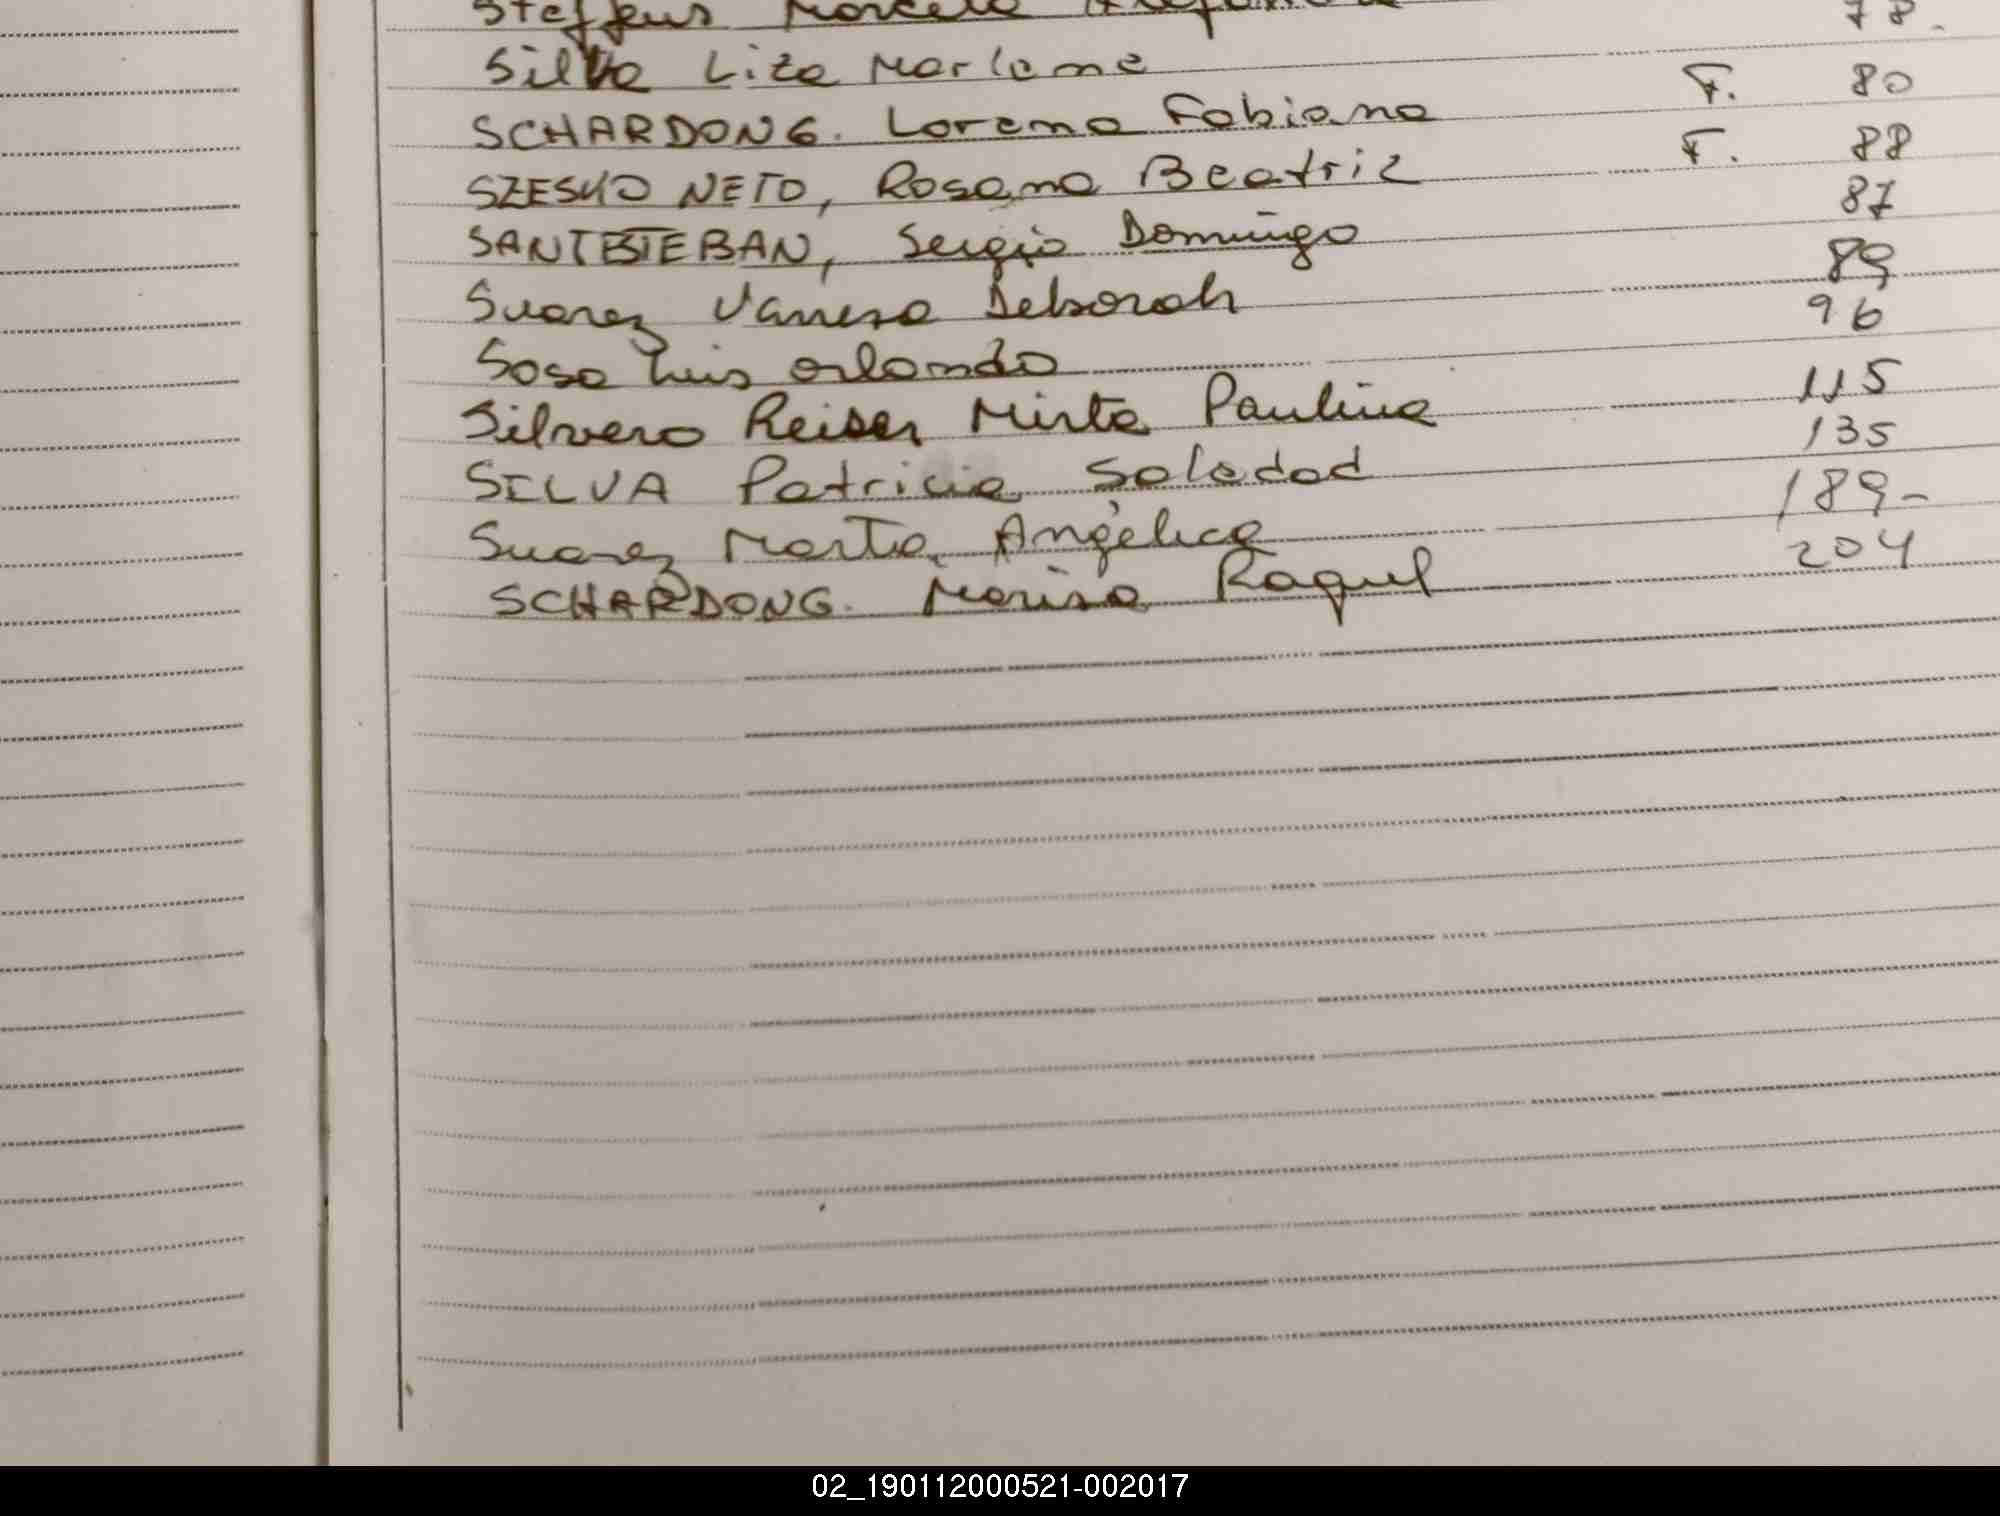 Steffens Marcelo 78.
Silva Liza Marlene
SCHARDONG. Lorena Fabiana F. 80
SZESKO NETO, Rosana Beatriz F. 88
SANTESTEBAN, Sergio Domingo 87
Suarez Vanesa Deborah 89
Sosa Luis Orlando 96
Silvero Reiser Mirta Paulina 115
SILVA Patricia Soledad 135
Suarez Marta Angélica 189-
SCHARDONG. Marisa Raquel 204
02_190112000521-002017